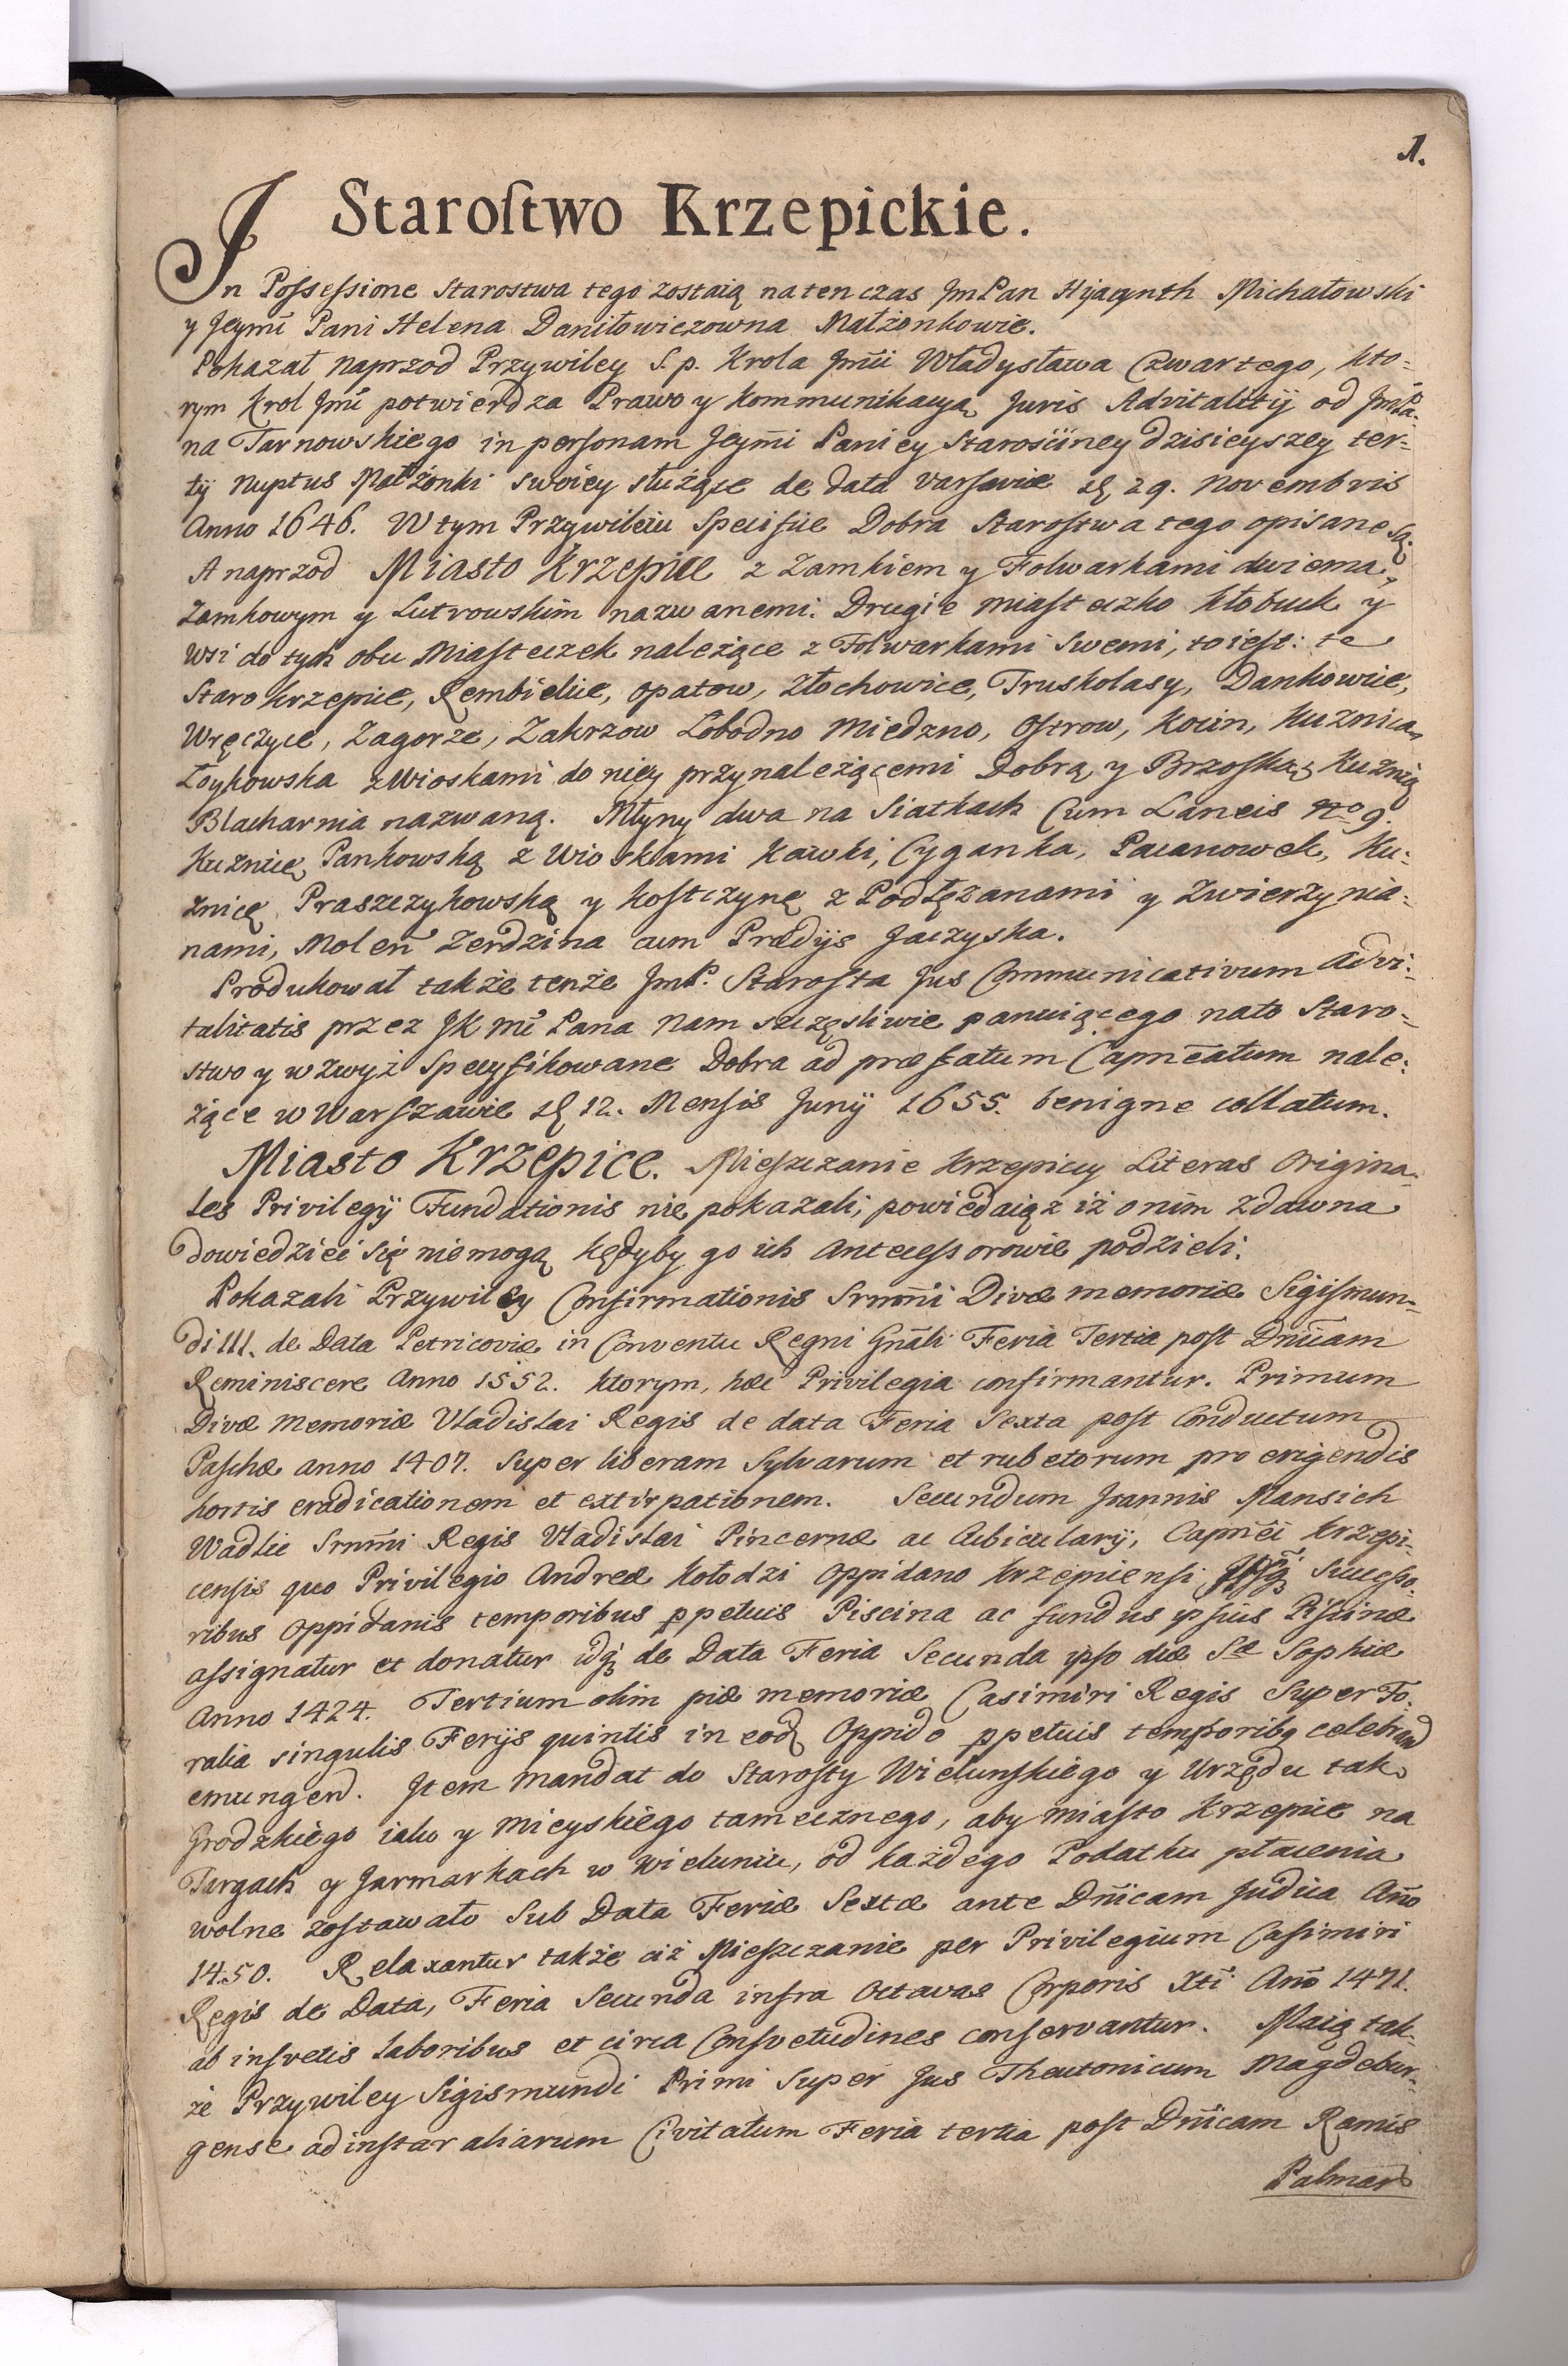 1.
Staroſtwo Krzepickie.
In Poſseſsione Starostwa tego zostaią na ten czas JmPan Hijacynth Michałowski
y Jeymć Pani Helena Daniłowiczowna Małżonkowie.
Pokazał naprzod Przywiley S. p. Krola Jmći Władysława Czwartego, kto-
rym Krol Jmć potwierdza Prawo y kommunikacyą Juris Advitalitij od JmPa-
na Tarnowskiego in perſonam Jeymći Paniey Starośćiney dzisieyszey ter-
tij nuptus Małżonki swoiey służące de data Varſaviæ 29. Novembris
Anno 1646. W tym Przywileiu Specifice Dobra Staroſtwa tego opisane są.
A naprzod Miasto Krzepice z Zamkiem y Folwarkami dwiema,
Zamkowym y Lutrowskim nazwanemi. Drugie miaſteczko Kłobuck y
wsi do tych obu Miaſteczek należące z Folwarkami Swemi, to ieſt: te
Staro krzepice, Rembielice, Opatow, Złochowice, Truskolasy, Dankowice,
Wręczyce, Zagorze, Zakrzow Łobodno Miedzno, Oſtrow, Kocin, Kuznica
Łoykowska z Wioskami do niey przynależącemi Dobrą, y Brzoſką, Kuznią
Blacharnia nazwaną. Młyny dwa na Siatkach Cum Laneis Nro 9.
Kuznicę Pankowską z Wioskami Kawki, Cyganka, Pacanowek, Ku-
znicę Praszczykowską y Koſtczynę z Podłężanami y Zwierzynia-
nami, Molen Zerdzina cum Prædijs Jaczyska.
Produkował także tenże JmP. Staroſta Jus Communicativum Advi-
talitatis przez JK mć Pana Nam szczęsliwie panuiącego na to Staro-
stwo y wzwyż Specyfikowane Dobra ad præfatum Capneatum nale-
żące w Warſzawie 12. Menſis Junij 1655. benigne collatum.
Miasto Krzepice. Mieſzczanie Krzepiccy Literas Origina-
les Privilegij Fundationis nie pokazali, powiedaiąc iż o nim zdawna
dowiedziec się niemogą kędyby go ich Anteceſsorowie podzieli.
Pokazali Przywiley Confirmationis Srnmi Divæ memoriæ Sigiſmun-
di III. de Data Petricoviæ in Conventu Regni Gnāli Feria Tertia post Dnicam
Reminiscere Anno 1552. ktorym, hæc Privilegia confirmantur. Primum
Divæ Memoriæ Vladislai Regis de data Feria Sexta poſt Conductum
Paſchæ anno 1407. Super liberam Sylvarum et rubetorum pro erigendis
hortis eradicationem et extirpationem. Secundum Joannis Mansich
Wadlic Srnmi Regis Vladislai Pincernæ ac Cubicularij, Capnēi Krzepi-
censis quo Privilegio Andreæ Kołodzi Oppidano Krzepicensi Succeſso-
ribus Oppidanis temporibus ppetuis Piscina ac fundus ipſius Piſcinæ
aſsignatur et donatur idq́; de Data Feria Secunda ipso die Stæ Sophiæ
Anno 1424. Tertium olim piæ memoriæ Casimiri Regis Super Fo-
ralia singulis Ferijs quintis in eod Oppido ppetuis temporibq celebrand
emungend. Jtem Mandat do Staroſty Wielunſkiego y Urzędu tak
Grodzkiego iako y Mieyskiego tamecznego, aby Miaſto Krzepice na
Targach y Jarmarkach w Wieluniu, od każdego Podatku płacenia
wolne zoſtawało Sub Data Feriæ Sextæ ante Dnicam Judica Año
1450. Relaxantur także ciż Mieſzczanie per Privilegium Casimiri
Regis de Data, Feria Secunda infra Octavas Corporis Xti Año 1471.
ab inſvetis laboribus et circa Conſvetudines conſervantur. Maią tak-
że Przywiley Sigismundi Primi Super Jus Theutonicum Magdebur-
gense ad inſtar aliarum Civitatum Feria tertia poſt Dnicam Ramis
Palmar